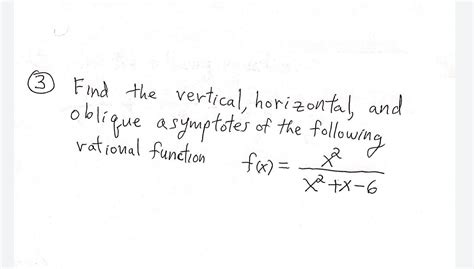 ③ Find the vertical, horizontal, and
oblique asymptotes of the following
rational function f(x) = x²/(x²+x-6)